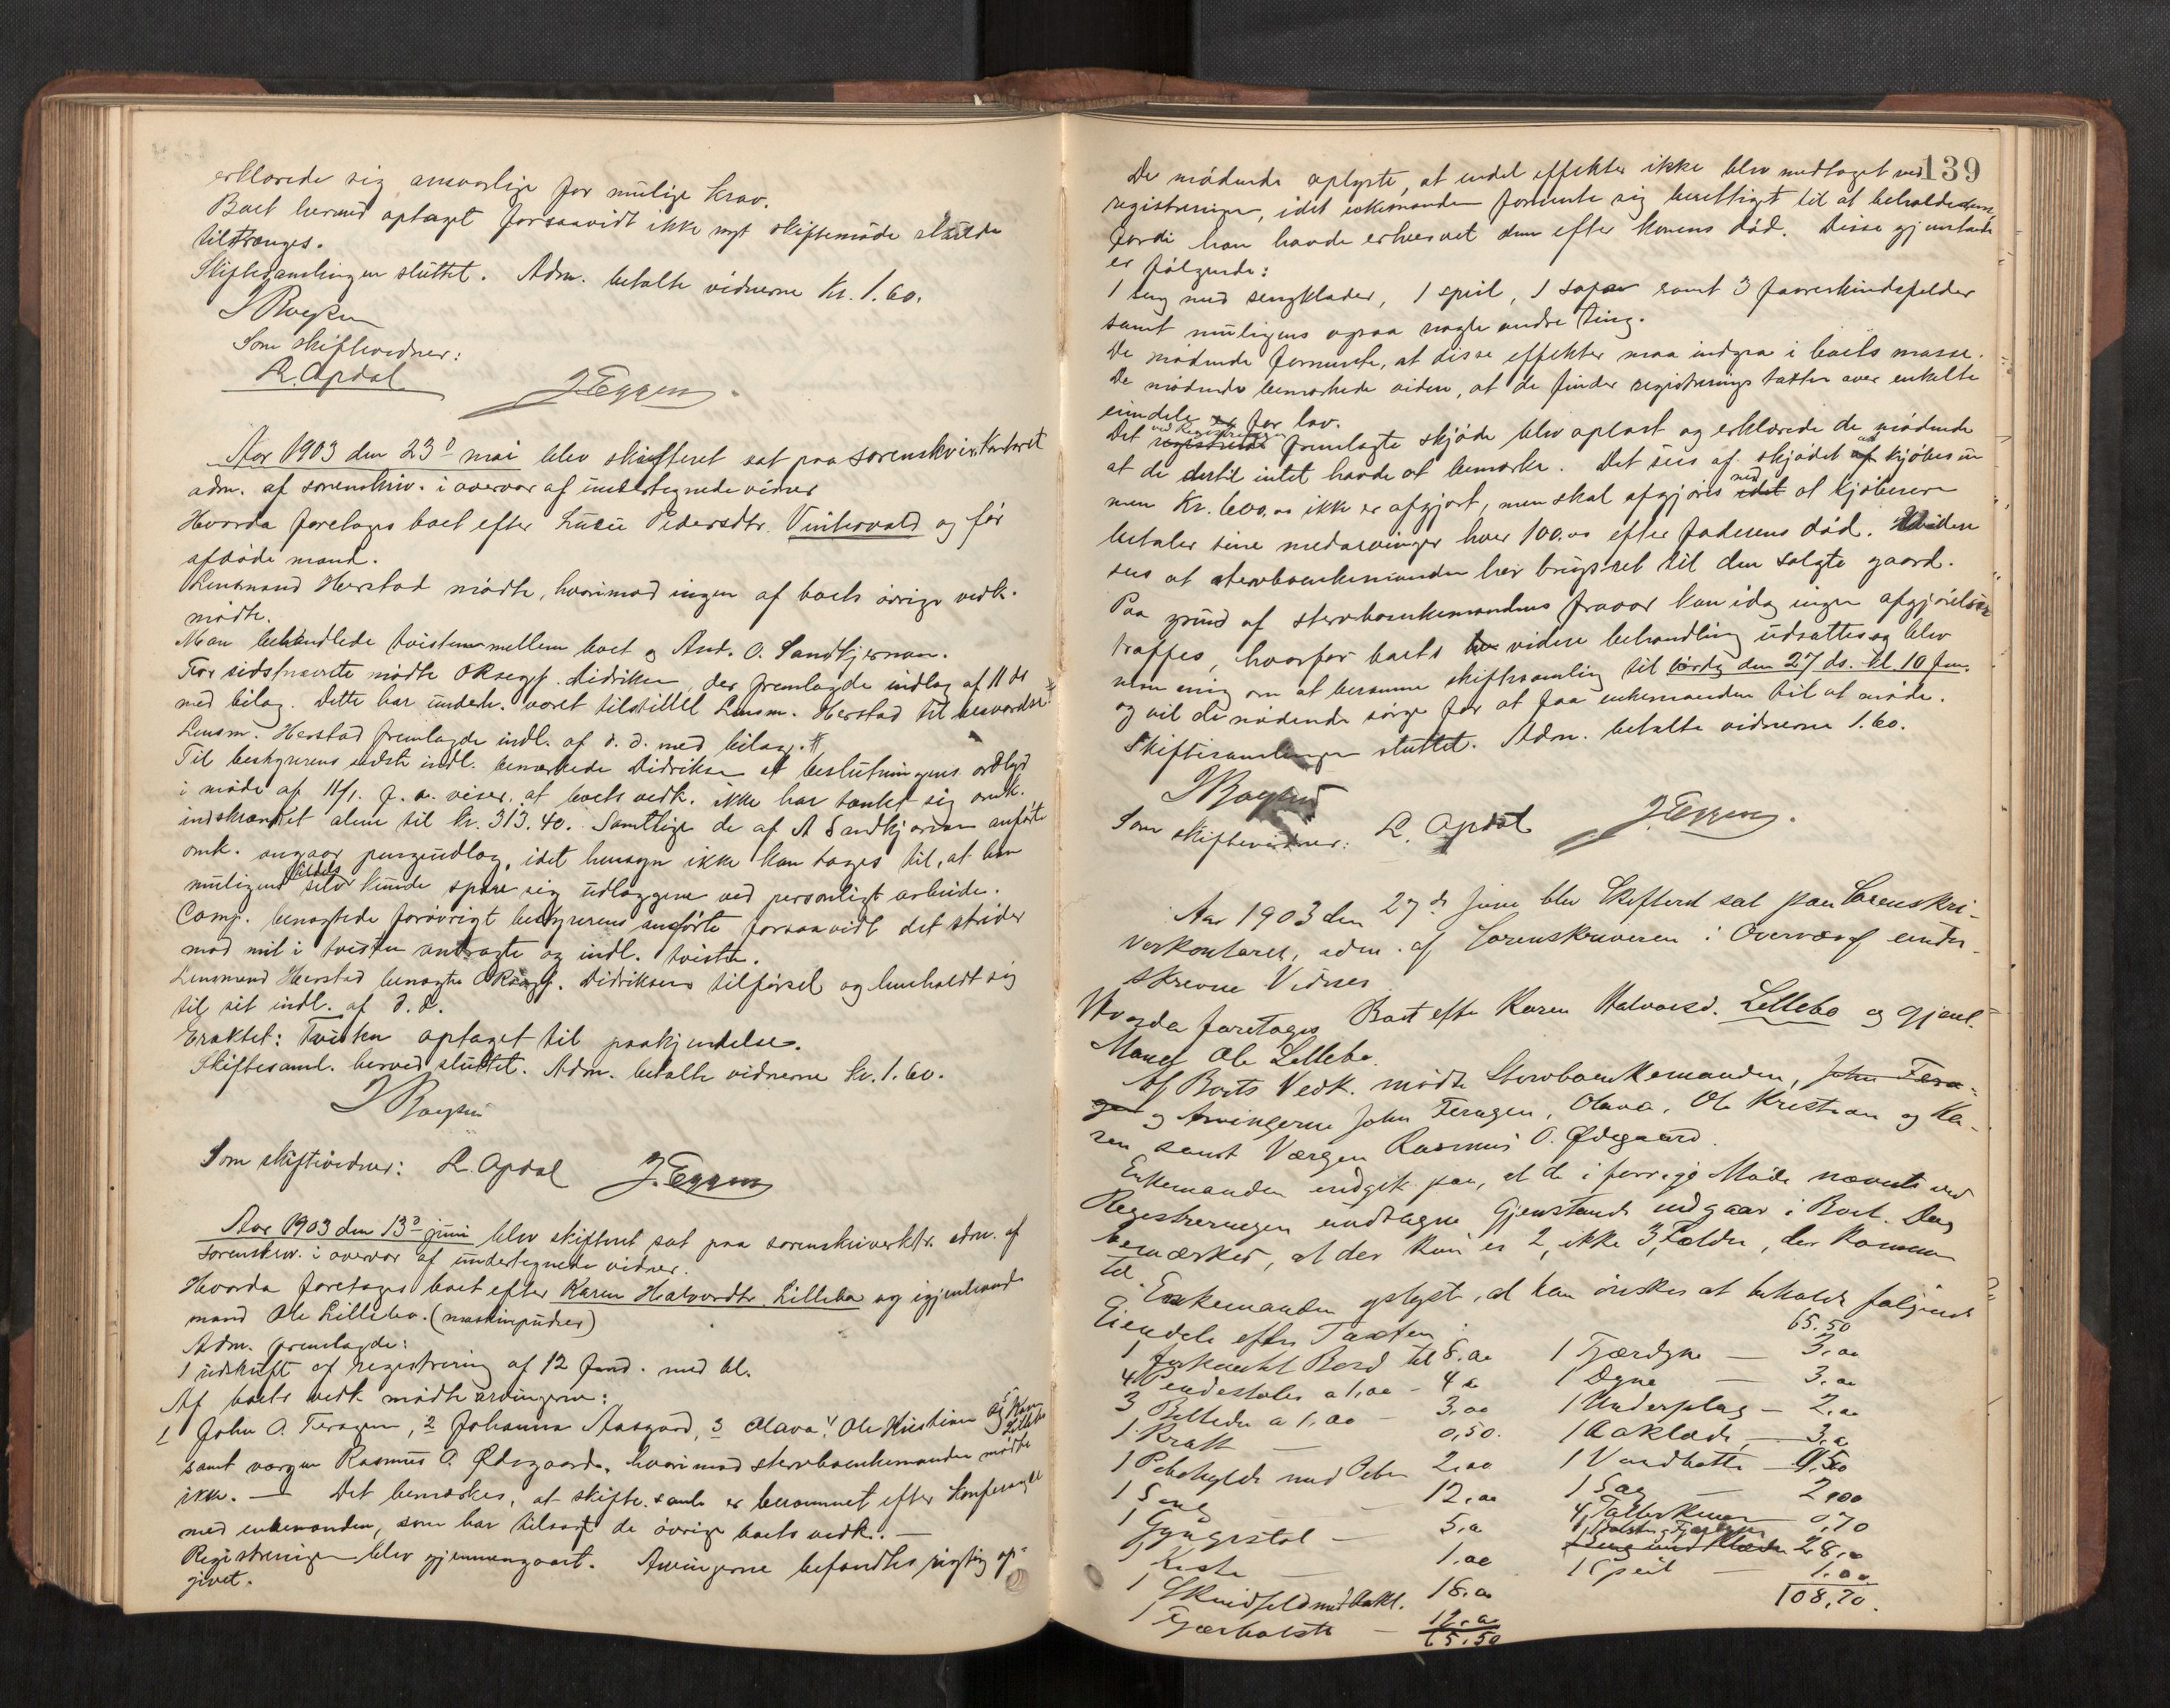 erklærede sig ansvarlige for mulige krav.
Boet hermed optaget forsaavidt ikke nyt skiftemøde skulde
tiltrænges.
Skiftesamlingen sluttet. Adm. betalte vidnerne kr. 1.60.
Som skiftevidner:
R. Opdal J. Eggen
Aar 1903 den 23d mai blev skifteret sat paa sorenskriv. kontoret
adm. af sorenskriv. i overvær af undertegnede vidner
Hvorda foretages boet efter Pedersdtr. Vintervold og før
afdøde mand.
Lensmand Herstad mødte, hvorimod ingen af boets øvrige vedk.
mødte.
Man behandlede tvisten mellem boet og And. O. Sandkjernan.
For sidstnævnte mødte Oksagf. Didriksen, der fremlagde indlæg af 11 ds
med bilag. Dette har underh. været tilstillet Lensm. Herstad til besvarelse
Lensm. Herstad fremlagde indl. af d. d. med bilag.
Til bestyrerens sidste indl. bemærkede Didriksen at beslutningens ordlyd
i møde af 11/1. f. a. viser, at boets vedk. ikke har tænkt sig omk.
indskrænket alene til kr. 313.40. Samtlige de af A Sandkjernan anførte
omk. angaar pengeudlæg, idet hensyn ikke kan tages til, at han
muligens tildels selv kunde spare sig udlæggene ved personligt arbeide.
Comp. benægtede forøvrigt bestyrerens anførte forsaavidt det strider
mod mit i tvisten antagte og indl. tvisten.
Lensmand Herstad benægter Oksagf. Didriksens tilførsel og henholdt sig
til sit indl. af d. d.
Eraktet: Tvisten optaget til paakjendelse.
Skiftesaml. herved sluttet. Adm. betalte vidnerne kr. 1.60.
Som skiftevidner: R. Opdal J. Eggen
Aar 1903 den 13d juni blev skifteret sat paa sorenskriverktr. adm. af
sorenskriv. i overvær af undertegnede vidner.
Hvorda foretages boet efter Karen Halvordtr. Lillebo og igjenlevende
mand Ole Lillebo. (maskinpudser)
Adm. fremlagde:
1 udskrift af registrering af 12 med bl.
Af boets vedk. mødte arvingerne:
1 John O. Feragen, 2 Johanna Aasgaard, 3 Olava, 4 Ole Kristian og 5 Karen Lillebo
samt værgen Rasmus O. Ødegaard, hvorimod stervboenkemanden mødte
ikke. — Det bemærkes, at skifte.saml. er berammet efter konferanse
med enkemanden, som har tilsagt de øvrige boets vedk. —
Registreringen blev gjennemgaaet. Arvingerne befandtes rigtig op-
givet.
139
De mødende oplyste, at endel effekter ikke blev medtaget ved
registreringen, idet enkemanden formente sig berettiget til at beholde dem,
fordi han havde erhvervet dem efter konens død. Disse gjenstande
er følgende:
1 seng med sengklæder, 1 speil, 1 sofa samt 3 faareskindsfelder
samt muligens ogsaa nogle andre ting.
De mødende formente, at disse effekter maa indgaa i boets masse.
De mødende bemærkede viden, at de finder registreringstaksten over enkelte
eiendele for lav.
Det ved registreringen fremlagte skjøde blev oplæst og erklærede de mødende
at de dertil intet havde at bemærke. Det sees af skjødet at kjøbesum
men kr. 600.00 ikke er afgjort, men skal afgjøres ved at kjøberen
betaler sine medarvinger hver 100.00 efter faderens død. Videre
sees at stervboenkemanden har brugsret til den solgte gaard.
Paa grund af stervboenkemandens fravær kan idag ingen afgjørelse
træffes, hvorfor boets videre behandling udsattes og blev
man enig om at beramme skiftesamling til lørdag den 27 ds. kl. 10 fm.
og vil de mødende sørge for at faa enkemanden til at møde.
Skiftesamlingen sluttet. Adm. betalte vidnerne 1.60.
Som skiftevidner: R. Opdal J. Eggen.
Aar 1903 den 27d Juni blev Skifteret sat paa Sorenskri-
verkontoret, adm. af Sorenskriveren i Overvær af under-
skrevne Vidner
Hvorda foretages Boet efter Karen Halvorsd. Lillebo og gjenl.
Mand Ole Lillebo.
Af Boets Vedk. mødte Stervboenkemanden, John Fera-
gen og Arvingerne John Feragen, Olava, Ole Kristian og Ka-
ren samt Værgen Rasmus O. Ødegaard.
Enkemanden indgik paa, at de i forrige Møde nævnte ved
Registreringen undtagne Gjenstande indgaar i Boet. Dog
bemærkes, at der kun er 2, ikke 3, Fælder, der kommer
til.
Enkemanden oplyste, at han ønsker at beholde følgende
Eiendele efter Taxten:
1 firkantet Bord til 8.00
4 Pindestole a 1.00 - 4.00
3 Billeder a 1,00 - 3,00
1 Krak — 0,50.
1 Pibehylde med Piber 2,00
1 Seng — 12,00
1 Gyngestol — 5,00
1 Kiste — 1.00
1 Skindfeld med Aakl. 18.00
1 Fjærbolster — 12.00
65.50
65.50
1 Fjærdyne — 3,00
1 Dyne — 3,00
1 Underplag — 2.00
1 Aaklæde — 3,00
1 Vandbøtte — 0,50
1 Sag — 2,00
4 Tallerkener 0,70
1 Seng med Klæder 28,00
1 Speil — 1.00
108,70.